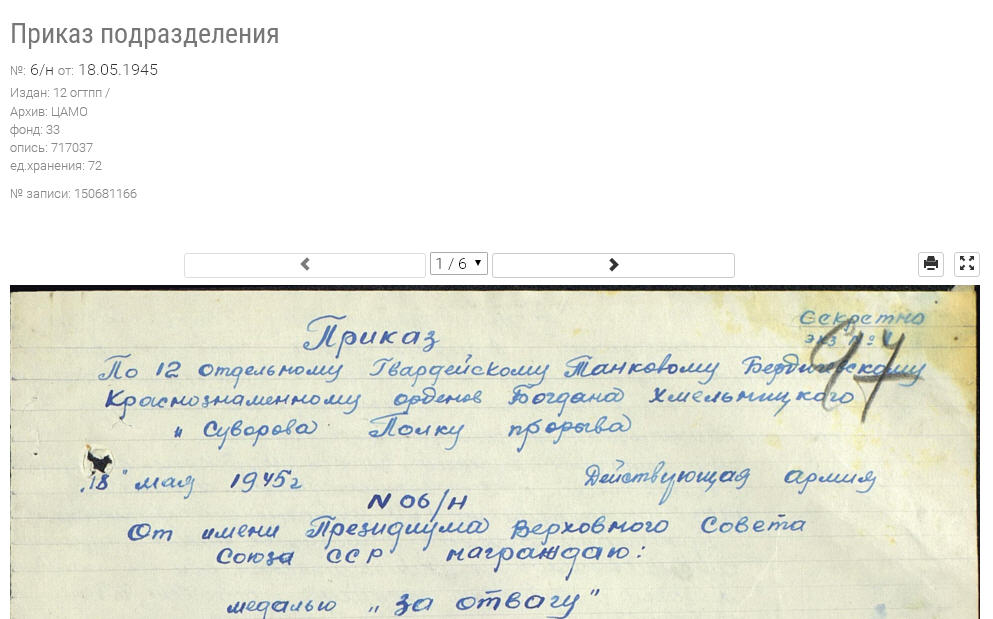 Приказ подразделения
№: 6/н от: 18.05.1945
Издан: 12 огтпп /
Архив: ЦАМО
фонд: 33
опись: 717037
ед.хранения: 72
№ записи: 150681166
1 / 6
Секретно
экз №
97
Приказ
По 12 отдельному Гвардейскому Танковому Бердичевскому
Краснознаменному орденов Богдана Хмельницкого
и Суворова Полку прорыва
"18" мая 1945г Действующая армия
N 06/н
От имени Президиума Верховного Совета
Союза ССР награждаю:
медалью „за отвагу"